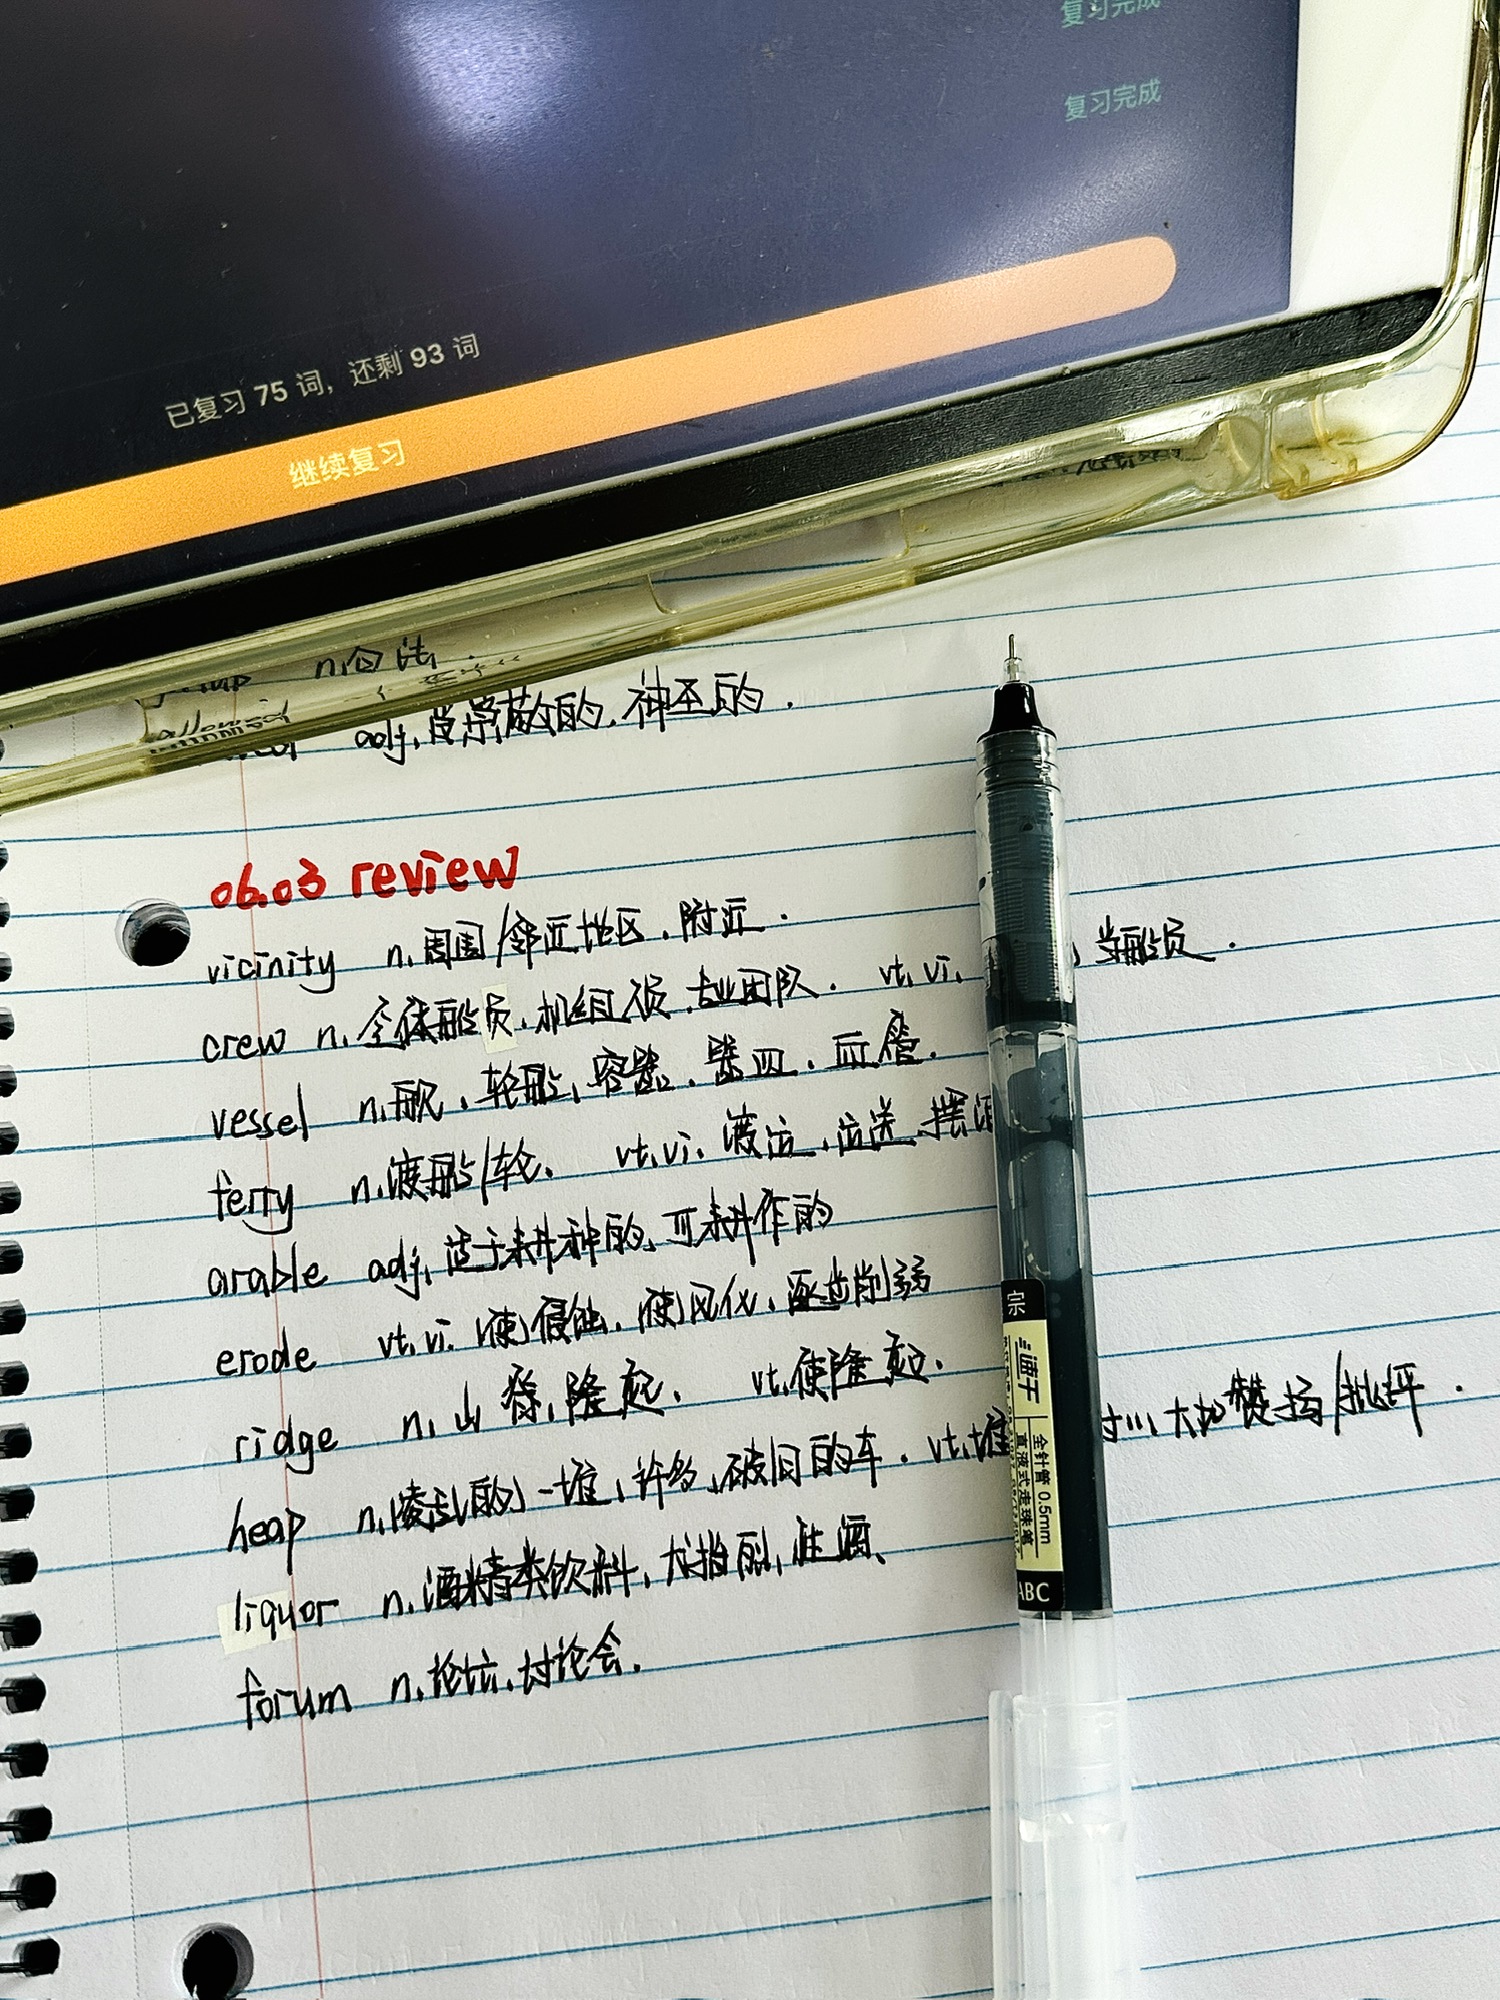 复习完成
复习完成
已复习 75 词，还剩 93 词
继续复习
n.句法
adj. 受崇敬的、神圣的.
06.03 review
vicinity n. 周围/邻近地区、附近.
crew n. 全体船员、机组人员、专业团队. vt.vi. 当船员.
vessel n. 船、轮船、容器、器皿、血管.
ferry n. 渡船/轮、 vt.vi. 渡运、运送、摆渡
arable adj. 适于耕种的、可耕作的
erode vt.vi. (使)侵蚀、(使)风化、逐步削弱
ridge n. 山脊、隆起、 vt. 使隆起.
heap n. (凌乱的)一堆、许多、破旧的车. vt. 堆 大加赞扬/批评.
liquor n. 酒精类饮料、尤指烈性酒、
forum n. 论坛、讨论会.
速干
全针管 0.5mm
直液式走珠笔
ABC